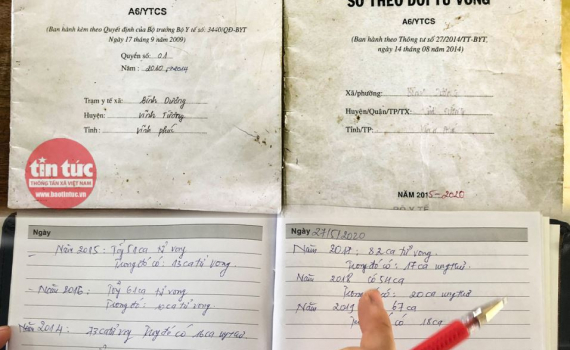 A6/YTCS
(Ban hành kèm theo Quyết định của Bộ trưởng Bộ Y tế số: 3440/QĐ-BYT
Ngày 17 tháng 9 năm 2009)
Quyển số: 01
Năm: 2010-2014
Trạm y tế xã: Bình Dương
Huyện: Vĩnh Tường
Tỉnh: Vĩnh phúc
tin tức
THÔNG TẤN XÃ VIỆT NAM
www.baotintuc.vn
SỔ THEO DÕI TỬ VONG
A6/YTCS
(Ban hành theo Thông tư số 27/2014/TT-BYT,
ngày 14 tháng 08 năm 2014)
Xã/phường:
Huyện/Quận/TP/TX:
Tỉnh/TP:
NĂM 2015-2020
BỘ Y TẾ
Ngày
Năm 2015: 51 ca tử vong
Trong đó có: 13 ca tử vong
Năm 2016: 61 ca tử vong
Trong đó:
Năm 2014: 73 ca tử vong Trong đó có 16 ca ung thư
Ngày 27/5/2020
Năm 2017: 82 ca tử vong
Trong đó có: 17 ca ung thư
Năm 2018 có 54 ca
có: 20 ca ung thư
Năm 67 ca
có 18 ca